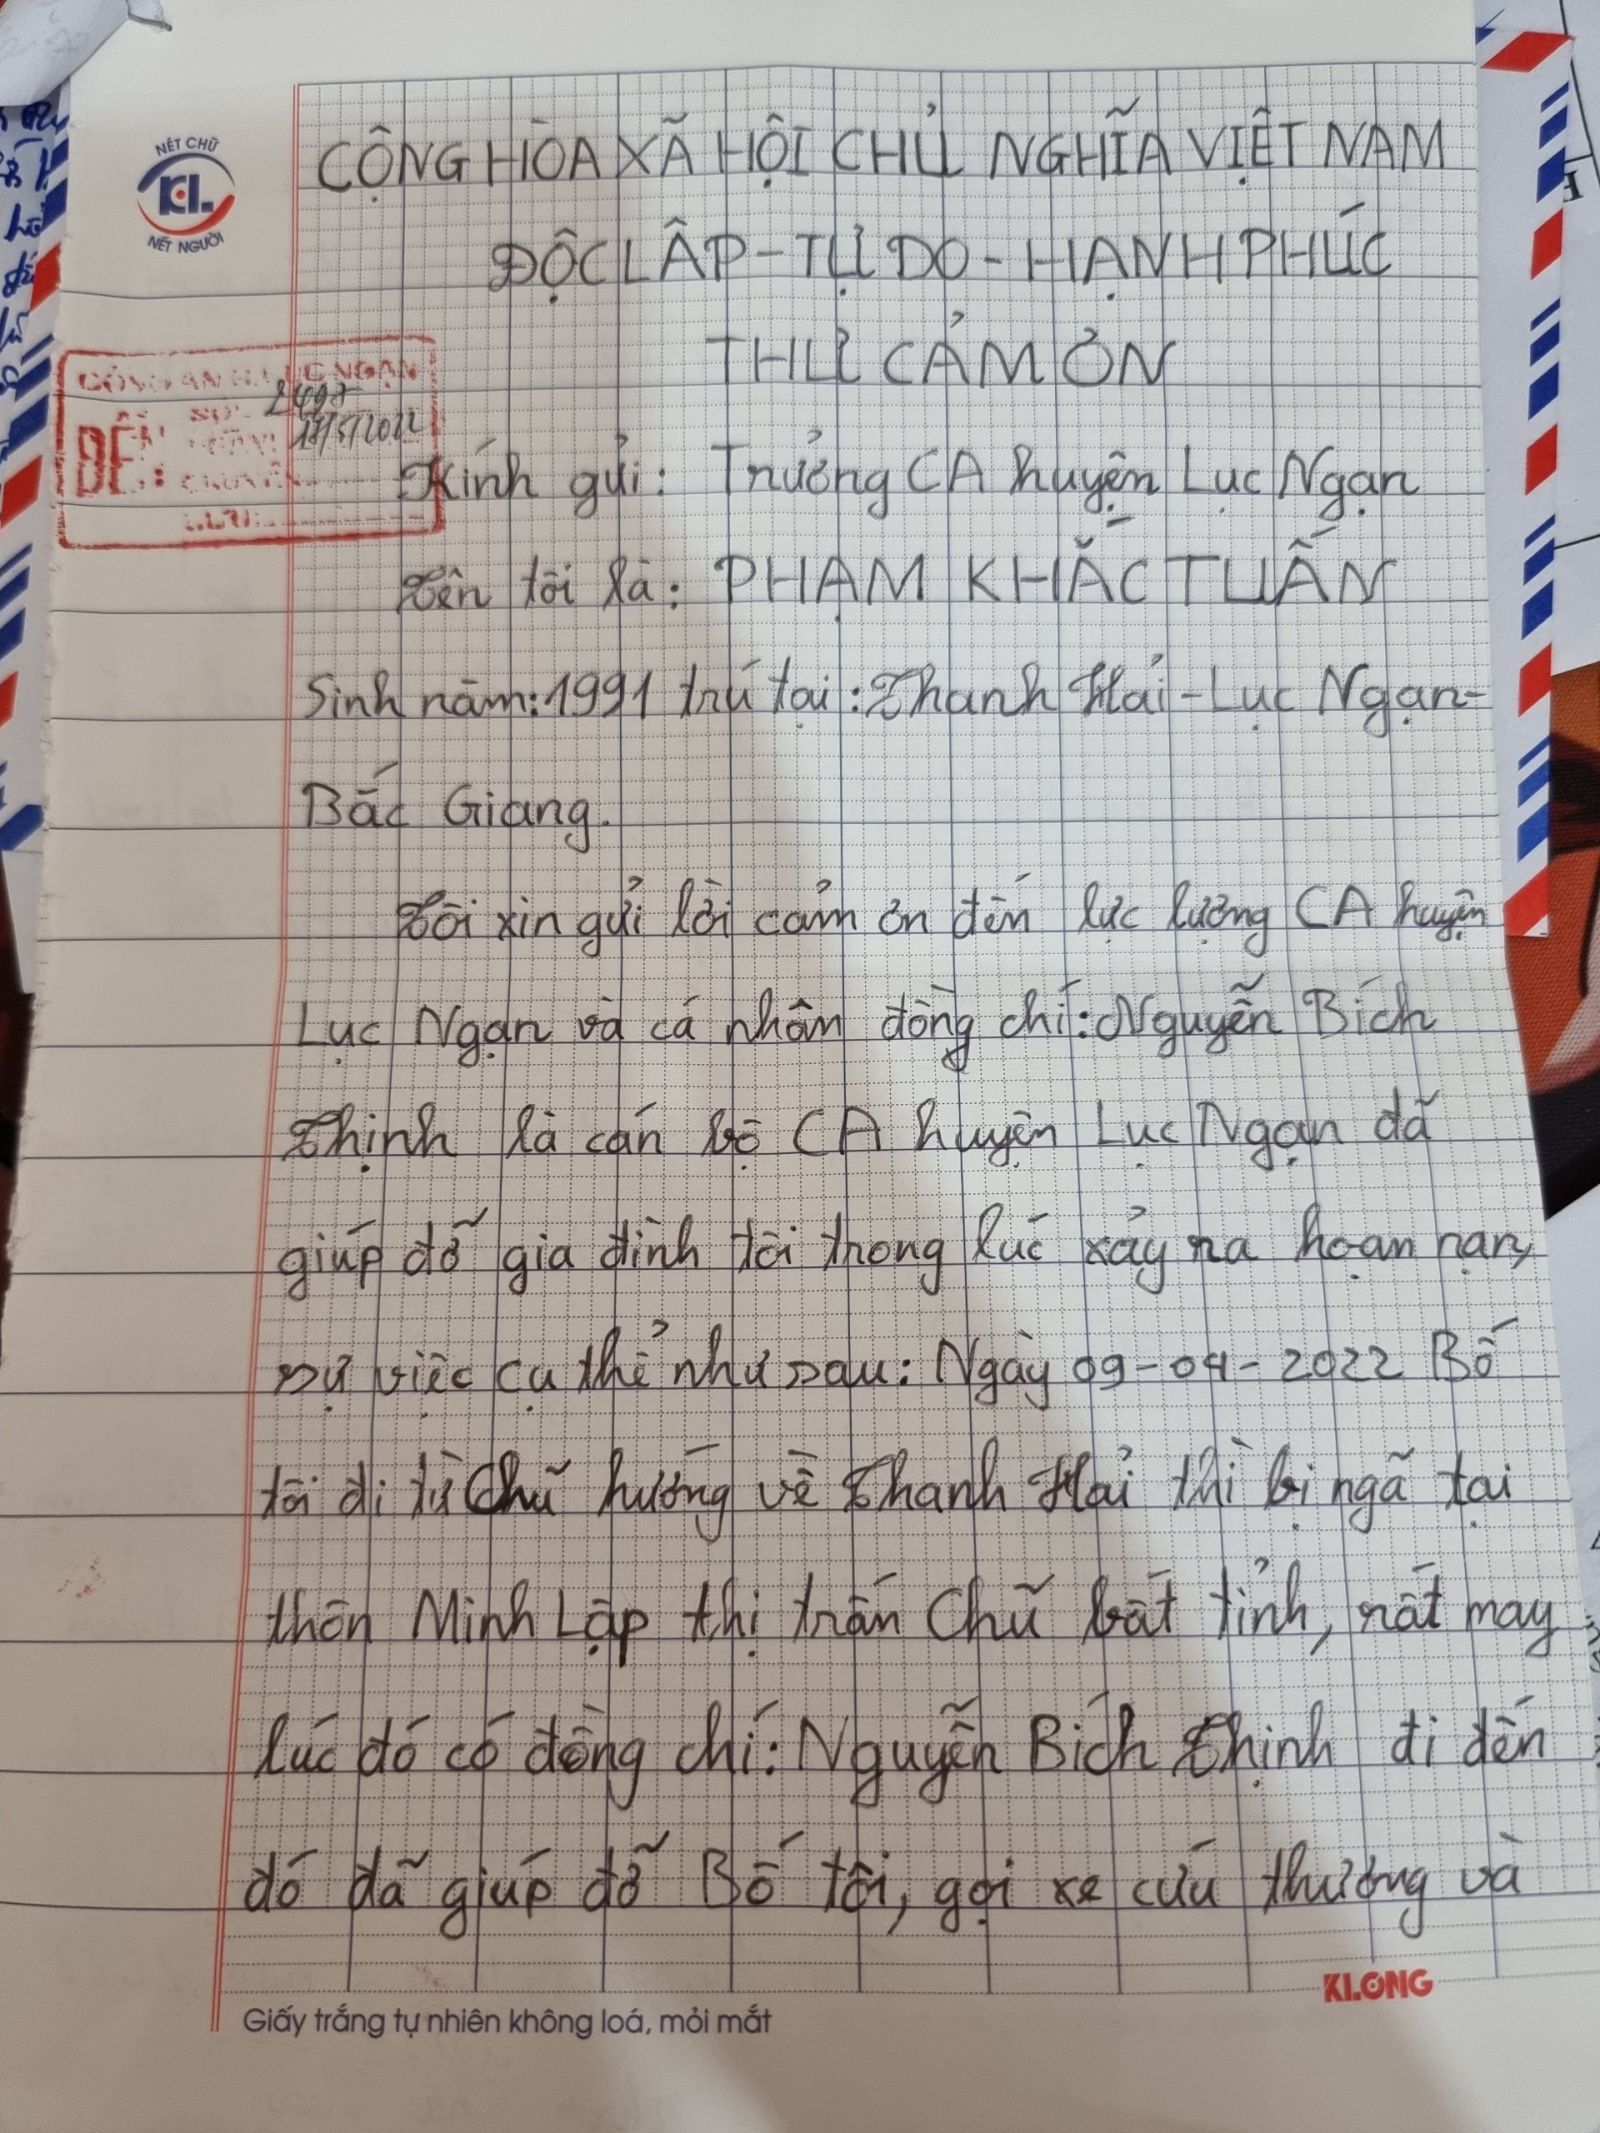 NÉT CHỮ
KL
NẾT NGƯỜI
CỘNG HÒA XÃ HỘI CHỦ NGHĨA VIỆT NAM
ĐỘC LẬP - TỰ DO - HẠNH PHÚC
THƯ CẢM ƠN
CÔNG AN H. LỤC NGẠN
ĐẾN
2498
17/5/2022
CHUYỂN
Kính gửi: Trưởng CA huyện Lục Ngạn
Tên tôi là: PHẠM KHẮC TUẤN
Sinh năm: 1991 trú tại: Thanh Hải - Lục Ngạn -
Bắc Giang.
Tôi xin gửi lời cảm ơn đến lực lượng CA huyện
Lục Ngạn và cá nhân đồng chí: Nguyễn Bích
Thịnh là cán bộ CA huyện Lục Ngạn đã
giúp đỡ gia đình tôi trong lúc xảy ra hoạn nạn,
sự việc cụ thể như sau: Ngày 09-04-2022 Bố
tôi đi từ Chũ hướng về Thanh Hải thì bị ngã tại
thôn Minh Lập thị trấn Chũ bất tỉnh, rất may
lúc đó có đồng chí: Nguyễn Bích Thịnh đi đến
đó đã giúp đỡ Bố tôi, gọi xe cứu thương và
KLONG
Giấy trắng tự nhiên không loá, mỏi mắt